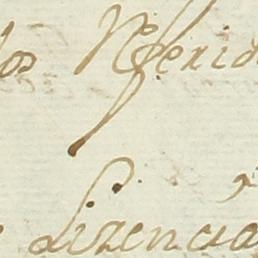 los Referid
Lizencia